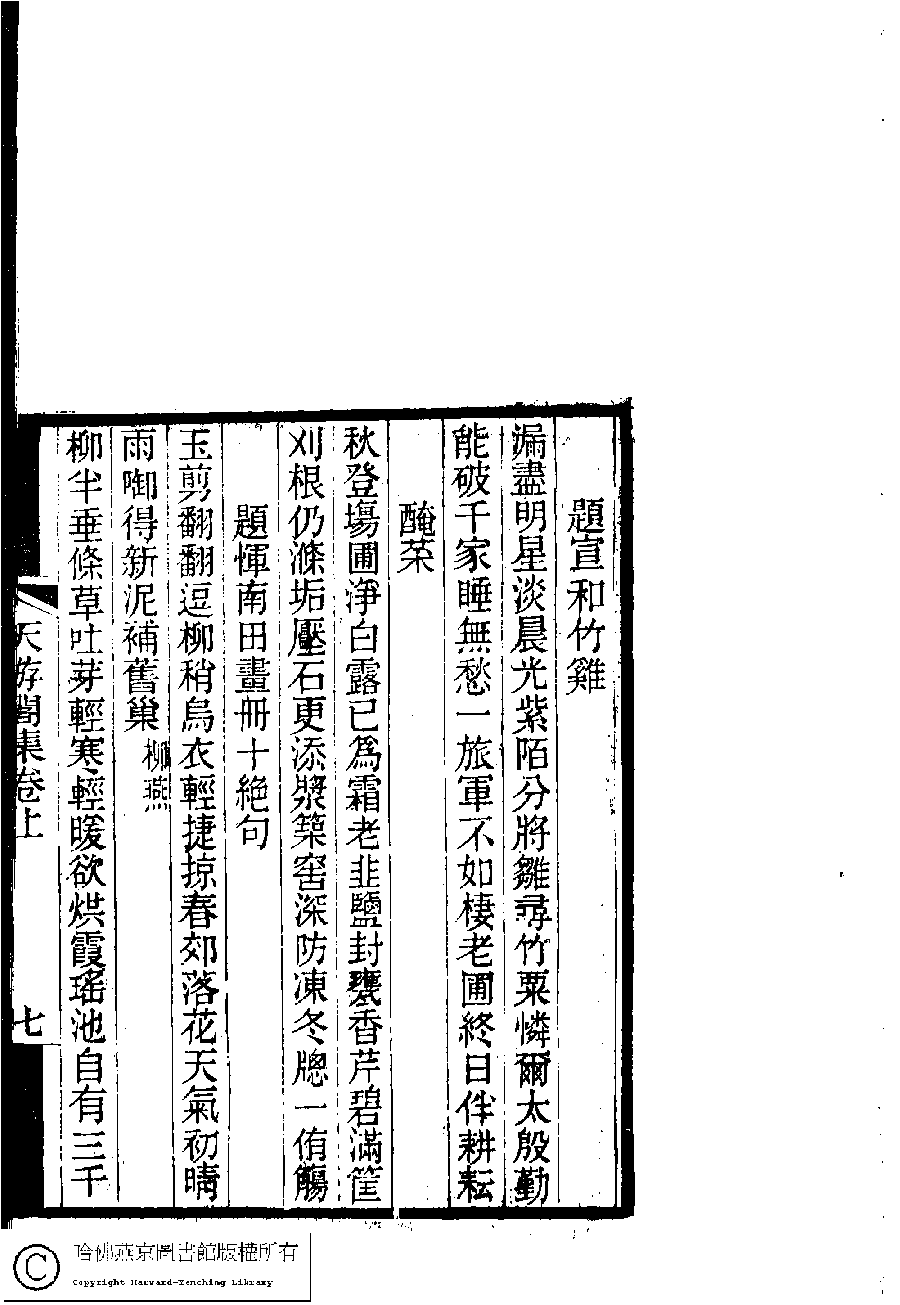 題宣和竹雞
漏盡明星淡晨光紫陌分將雛尋竹粟憐爾太殷勤
能破千家睡無愁一旅軍不如棲老圃終日伴耕耘
醃菜
秋登塲圃淨白露已爲霜老韭鹽封甕香芹碧滿筐
刈根仍滌垢壓石更添漿築窖深防凍冬牕一侑觴
題惲南田畫冊十絶句
玉剪翻翻逗柳稍烏衣輕捷掠春郊落花天氣初晴
雨啣得新泥補舊巢柳燕
柳半垂條草吐芽輕寒輕暖欲烘霞瑤池自有三千
天游閣集卷上
七
哈佛燕京圖書館版權所有
Copyright Harvard-Yenching Library